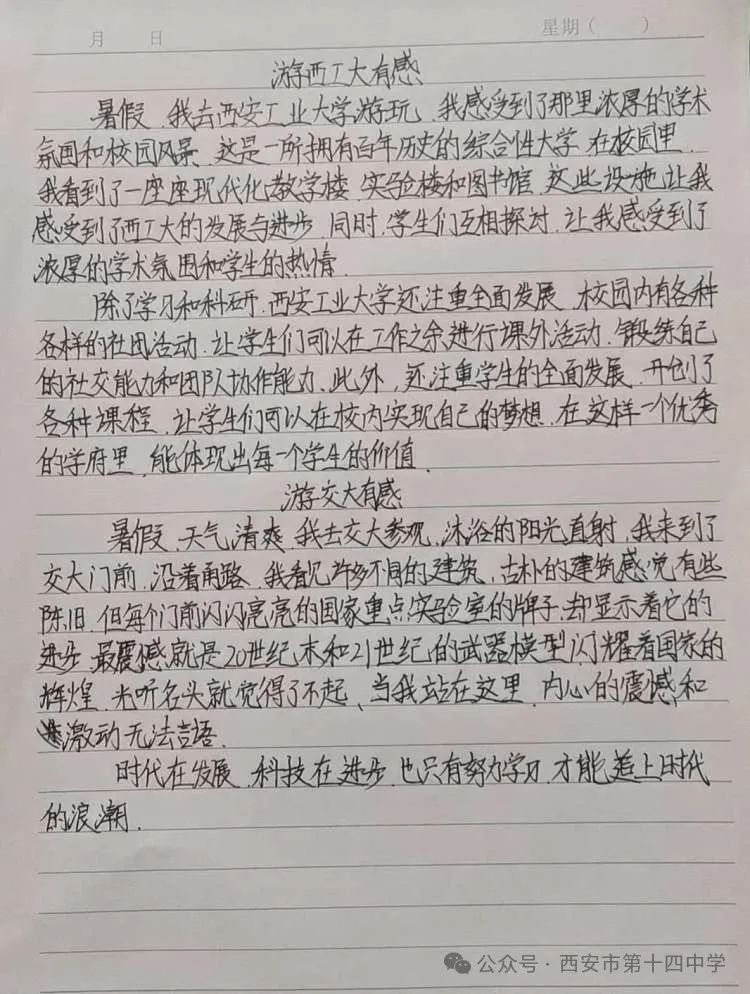 月 日 星期( )
游西工大有感
暑假,我去西安工业大学游玩,我感受到了那里浓厚的学术
氛围和校园风景,这是一所拥有百年历史的综合性大学,在校园里,
我看到了一座座现代化教学楼,实验楼和图书馆,这些设施让我
感受到了西工大的发展与进步,同时,学生们互相探讨,让我感受到了
浓厚的学术氛围和学生的热情.
除了学习和科研,西安工业大学还注重全面发展,校园内有各种
各样的社团活动,让学生们可以在工作之余进行课外活动,锻练自己
的社交能力和团队协作能力,此外,还注重学生的全面发展,开创了
各种课程,让学生们可以在校内实现自己的梦想,在这样一个优秀
的学府里,能体现出每一个学生的价值.
游交大有感
暑假,天气清爽,我去交大参观,沐浴的阳光直射,我来到了
交大门前,沿着甬路,我看见许多不同的建筑,古朴的建筑感觉有些
陈旧,但每个门前闪闪亮亮的国家重点实验室的牌子,却显示着它的
进步,最震憾就是20世纪末和21世纪的武器模型闪耀着国家的
辉煌,光听名头就觉得了不起,当我站在这里,内心的震憾和
激动无法言语.
时代在发展,科技在进步,也只有努力学习,才能赶上时代
的浪潮.
公众号·西安市第十四中学